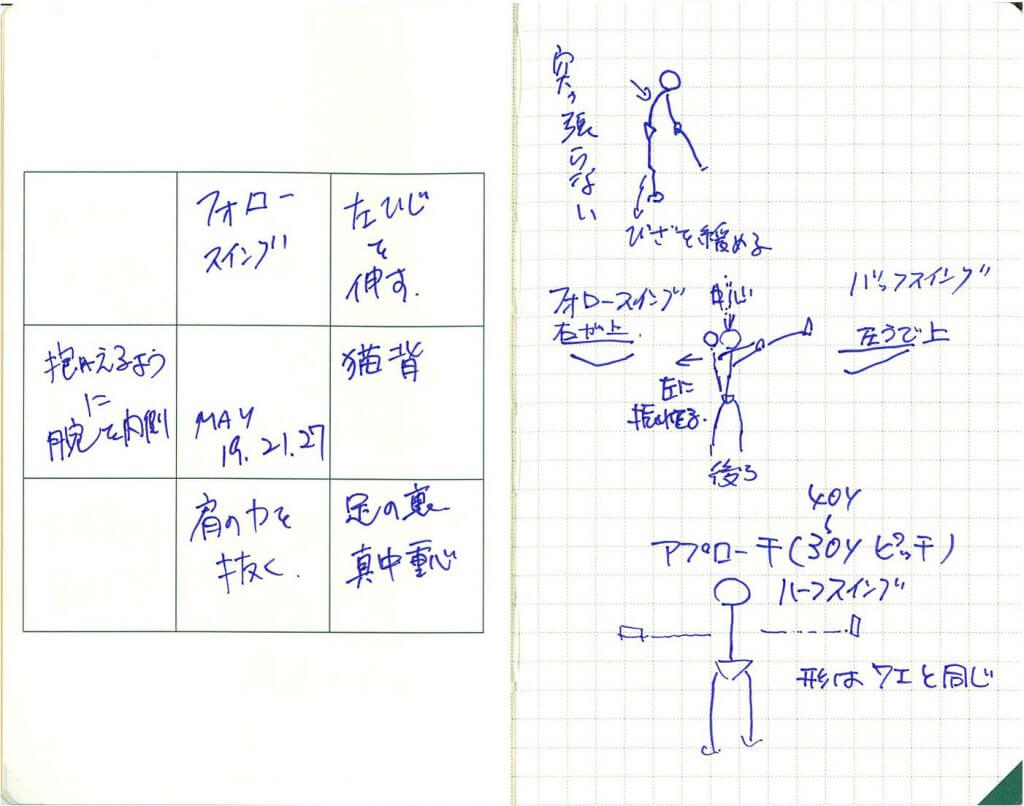 フォロー
スイング
左ひじ
を
伸す.
抱かえるよう
に
腕を内側
MAY
19.21.27
猫背
肩の力を
抜く.
足の裏
真中重心
突っ張らない
ひざを緩める
フォロースイング
右が上.
中心
バックスイング
左うで上
左に
後ろ
40Y
アプローチ(30Yピッチ)
ハーフスイング
形はウエと同じ